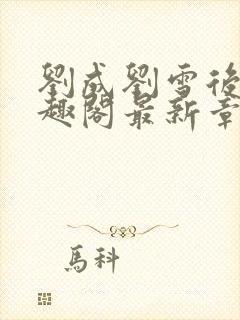 劉成劉雪後
趣閣最新章
馬科